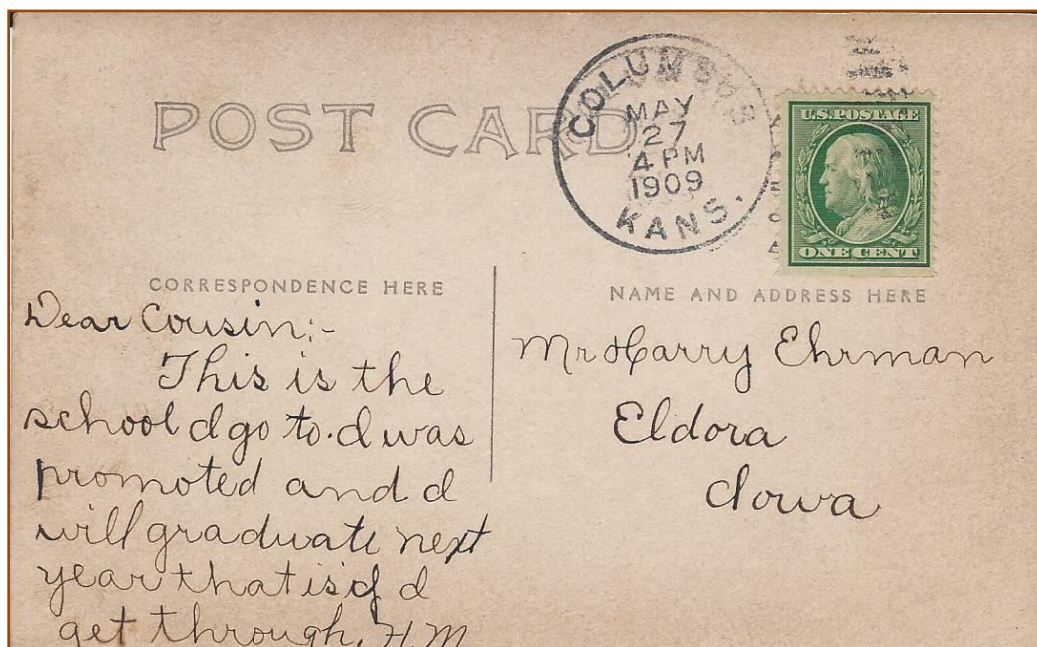 POST CARD
COLUMBUS
MAY
27
4 PM
1909
KANS.
U.S. POSTAGE
ONE CENT
CORRESPONDENCE HERE
Dear Cousin:-
This is the
school I go to. I was
promoted and I
will graduate next
year that is if I
get through. H.M
NAME AND ADDRESS HERE
Mr Harry Ehrman
Eldora
Iowa